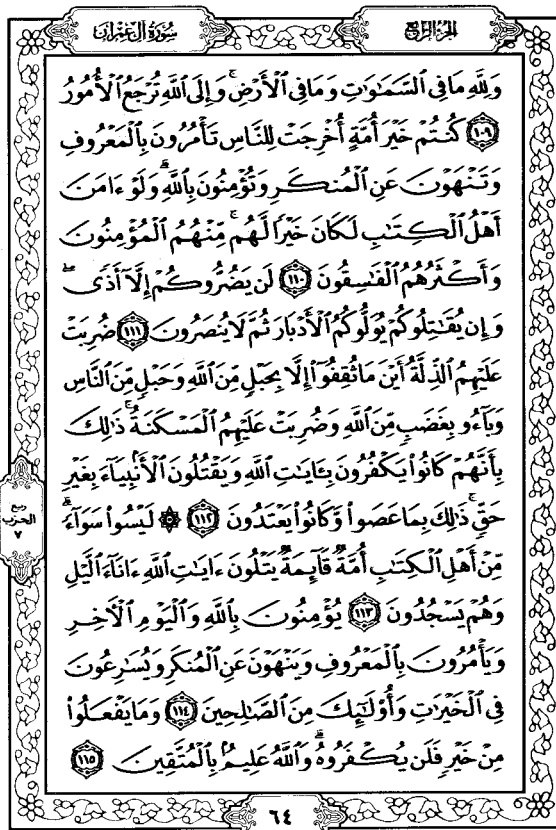 سُورَةُ آلِ عِمْرَانَ
الجُزْءُ الرَّابِعُ
وَلِلَّهِ مَا فِي ٱلسَّمَٰوَٰتِ وَمَا فِي ٱلْأَرْضِ ۚ وَإِلَى ٱللَّهِ تُرْجَعُ ٱلْأُمُورُ
١٠٩ كُنتُمْ خَيْرَ أُمَّةٍ أُخْرِجَتْ لِلنَّاسِ تَأْمُرُونَ بِٱلْمَعْرُوفِ
وَتَنْهَوْنَ عَنِ ٱلْمُنكَرِ وَتُؤْمِنُونَ بِٱللَّهِ ۗ وَلَوْ ءَامَنَ
أَهْلُ ٱلْكِتَٰبِ لَكَانَ خَيْرًا لَّهُم ۚ مِّنْهُمُ ٱلْمُؤْمِنُونَ
وَأَكْثَرُهُمُ ٱلْفَٰسِقُونَ ١١٠ لَن يَضُرُّوكُمْ إِلَّآ أَذًى ۖ
وَإِن يُقَٰتِلُوكُمْ يُوَلُّوكُمُ ٱلْأَدْبَارَ ثُمَّ لَا يُنصَرُونَ ١١١ ضُرِبَتْ
عَلَيْهِمُ ٱلذِّلَّةُ أَيْنَ مَا ثُقِفُوٓا۟ إِلَّا بِحَبْلٍ مِّنَ ٱللَّهِ وَحَبْلٍ مِّنَ ٱلنَّاسِ
وَبَآءُو بِغَضَبٍ مِّنَ ٱللَّهِ وَضُرِبَتْ عَلَيْهِمُ ٱلْمَسْكَنَةُ ۚ ذَٰلِكَ
بِأَنَّهُمْ كَانُوا۟ يَكْفُرُونَ بِـَٔايَٰتِ ٱللَّهِ وَيَقْتُلُونَ ٱلْأَنۢبِيَآءَ بِغَيْرِ
حَقٍّ ۚ ذَٰلِكَ بِمَا عَصَوا۟ وَّكَانُوا۟ يَعْتَدُونَ ١١٢ ۞ لَيْسُوا۟ سَوَآءً ۗ
مِّنْ أَهْلِ ٱلْكِتَٰبِ أُمَّةٌ قَآئِمَةٌ يَتْلُونَ ءَايَٰتِ ٱللَّهِ ءَانَآءَ ٱلَّيْلِ
وَهُمْ يَسْجُدُونَ ١١٣ يُؤْمِنُونَ بِٱللَّهِ وَٱلْيَوْمِ ٱلْءَاخِرِ
وَيَأْمُرُونَ بِٱلْمَعْرُوفِ وَيَنْهَوْنَ عَنِ ٱلْمُنكَرِ وَيُسَٰرِعُونَ
فِي ٱلْخَيْرَٰتِ وَأُو۟لَٰٓئِكَ مِنَ ٱلصَّٰلِحِينَ ١١٤ وَمَا يَفْعَلُوا۟
مِنْ خَيْرٍ فَلَن يُكْفَرُوهُ ۗ وَٱللَّهُ عَلِيمٌۢ بِٱلْمُتَّقِينَ ١١٥
ربع
الحزب
٧
٦٤